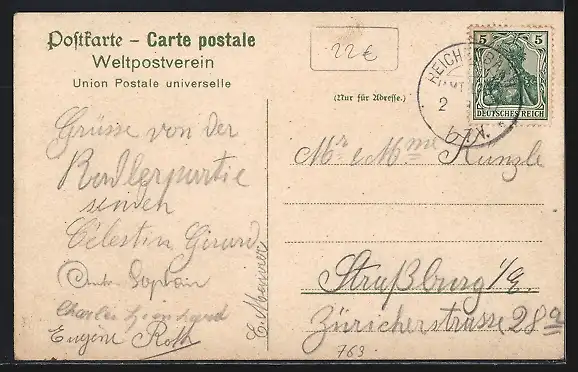 Postkarte – Carte postale
Weltpostverein
Union Postale universelle
22€
(Nur für Adresse.)
5 5
DEUTSCHES REICH
Grüsse von der
Radlerpartie
senden
Celestin Girard
Eugène Roth
E. Meunier
Mr e Mme Kunzle
Straßburg i/E.
Züricherstrasse 28a
763